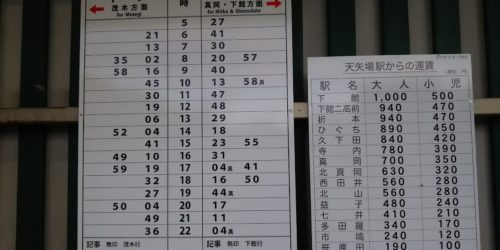 茂木方面 時 真岡・下館方面
for Motegi for Moka & Shimodate
5 27
21 6 41
13 7 30
35 02 8 20 57
58 16 9 40
45 10 13 58真
30 11 47
19 12 48
06 13 29
52 04 14 18
41 15 23 55
49 10 16 31
59 19 17 04真 41
32 18 16 50
27 19 44真
50 04 20 17
49 21 11
36 22 04真
記事 無印 茂木行 記事 無印 下館行
天矢場駅からの運賃
(単位:円)
駅名 大人 小児
下館 1,000 500
下館二高前 940 470
折本 940 470
ひぐち 890 450
久下田 840 420
寺内 780 390
真岡 700 350
北真岡 630 320
西田井 560 280
北山 560 280
益子 480 240
七井 410 210
多田羅 340 170
市塙 240 120
笹原田 190 100